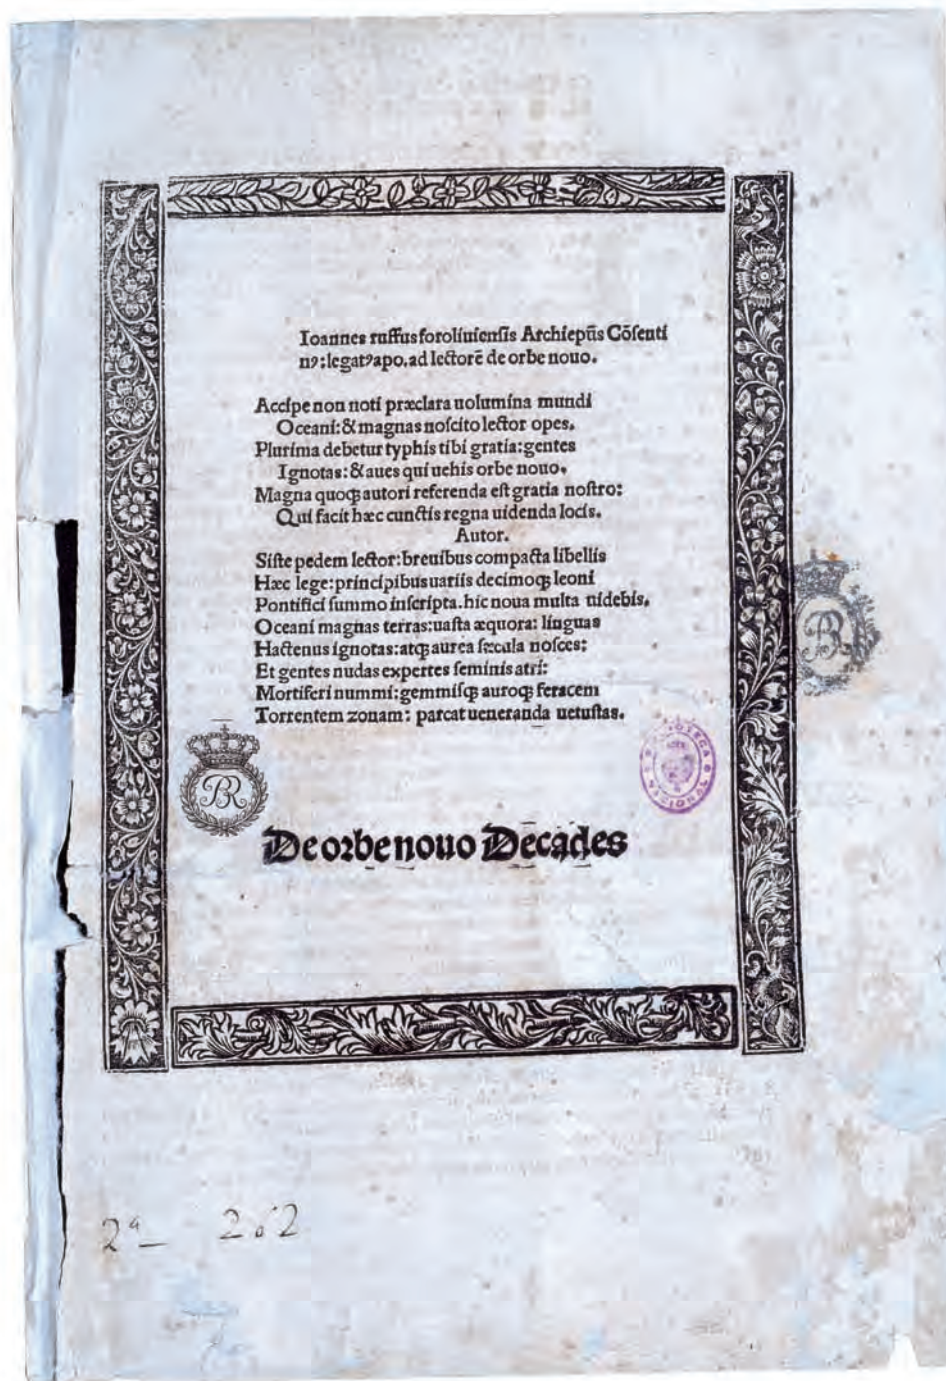 Ioannes ruffus foroliuiensis Archiepūs Cōsenti
nꝰ: legatꝰ apo. ad lectorē de orbe nouo.
Accipe non noti præclara uolumina mundi
Oceani: & magnas noscito lector opes.
Plurima debetur typhis tibi gratia: gentes
Ignotas: & aues qui uehis orbe nouo.
Magna quoqꝫ autori referenda est gratia nostro:
Qui facit hæc cunctis regna uidenda locis.
Autor.
Siste pedem lector: breuibus compacta libellis
Hæc lege: principibus uariis decimoqꝫ leoni
Pontifici summo inscripta. hic noua multa uidebis.
Oceani magnas terras: uasta æquora: linguas
Hactenus ignotas: atqꝫ aurea sæcula nosces:
Et gentes nudas expertes seminis atri:
Mortiferi nummi: gemmisqꝫ auroqꝫ feracem
Torrentem zonam: parcat ueneranda uetustas.
BR
BR
BIBLIOTECA NACIONAL
De orbe nouo Decades
2ª 202